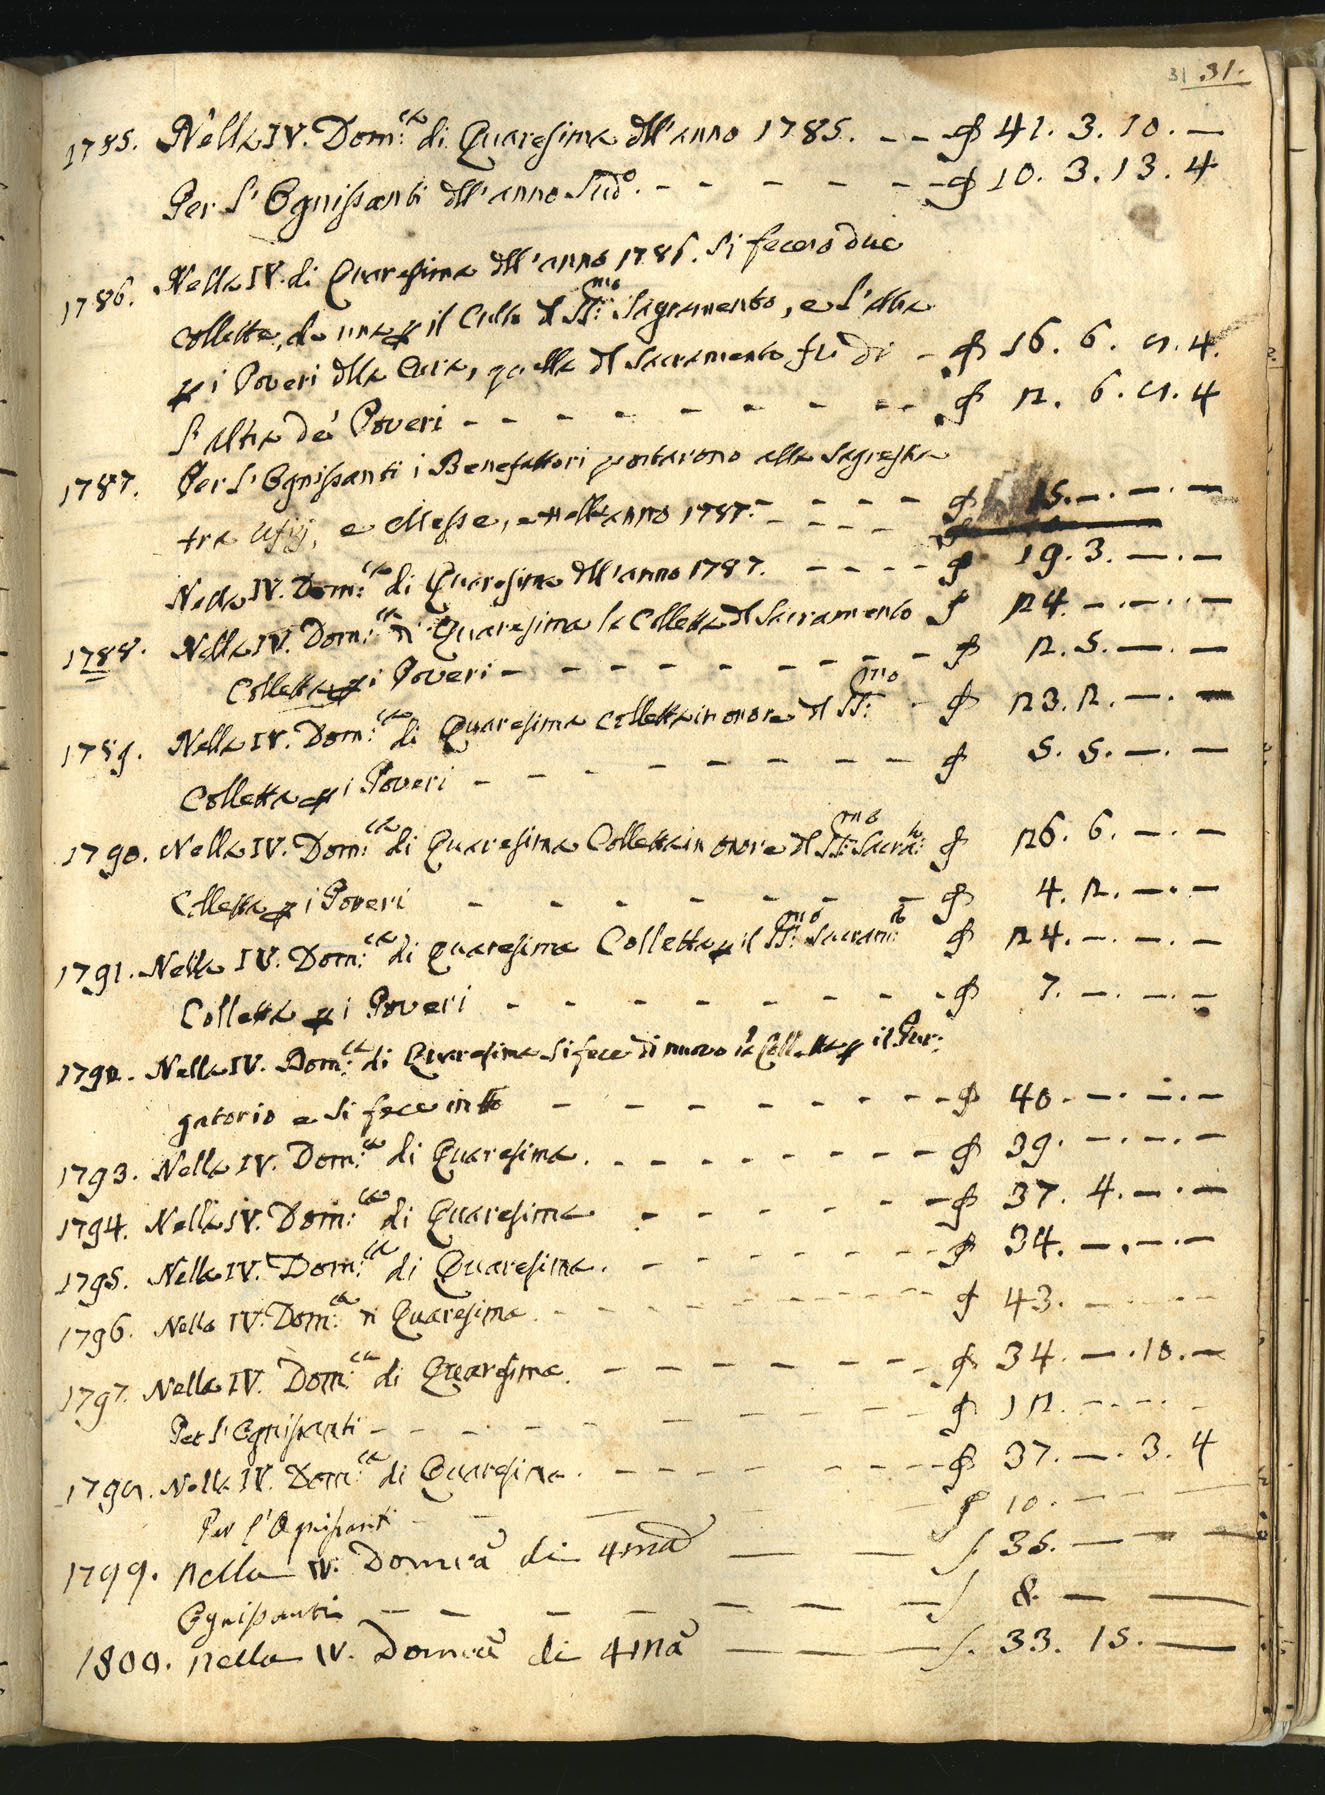 31 .31.
1785. Nella IV. Dom:ca di Quaresima dll'anno 1785. - - ₰ 41. 3. 10. —
Per l'Ognissanti dll'anno Sud.o - - - - - - - ₰ 10. 3. 13. 4
1786. Nella IV. di Quaresima dll'anno 1786. si fecero due
collette, da una p il Culto dl SS:mo Sagramento, e l'altra
p i Poveri dlla Cura, quella dl Sacramento fu di - ₰ 16. 6. 8. 4.
l'altra de' Poveri - - - - - - - - - ₰ 2. 6. 8. 4
1787. Per l'Ognissanti i Benefattori portarono alla Sagrestia
tra Ufizj, e Messe, nell'anno 1787. - - - - - ₰ 15. —. —. —
Nella IV. Dom:ca di Quaresima dll'anno 1787. - - - - ₰ 19. 3. —. —
1788. Nella IV. Dom:ca di Quaresima la Colletta dl Sacramento ₰ 24. —. —. —
Colletta p i Poveri - - - - - - - - - ₰ 2. 5. —. —
1789. Nella IV. Dom:ca di Quaresima colletta in onore dl SS:mo - ₰ 23. 2. —. —
Colletta p i Poveri - - - - - - - - - ₰ 5. 5. —. —
1790. Nella IV. Dom:ca di Quaresima Colletta in onore dl SS:mo Sacra:to ₰ 26. 6. —. —
Colletta p i Poveri - - - - - - - - ₰ 4. 2. —. —
1791. Nella IV. Dom:ca di Quaresima Colletta p il SS:mo Sacram:to ₰ 24. —. —. —
Colletta p i Poveri - - - - - - - - - ₰ 7. —. —. —
1792. Nella IV. Dom:ca di Quaresima si fece di nuovo la Colletta p il Pur:
gatorio e si fece in tto - - - - - - - - - ₰ 40. —. —. —
1793. Nella IV. Dom:ca di Quaresima. - - - - - - - - - ₰ 39. —. —. —
1794. Nella IV. Dom:ca di Quaresima - - - - - - - ₰ 37. 4. —. —
1795. Nella IV. Dom:ca di Quaresima. - - - - - - - - - ₰ 34. —. —. —
1796. Nella IV. Dom:ca di Quaresima. - - - - - - - - - ₰ 43. - - - -
1797. Nella IV. Dom:ca di Quaresima. - - - - - - - ₰ 34. —. 10. —
Per l'Ognissanti - - - - - - - - - ₰ 12. - - - -
1798. Nella IV. Dom:ca di Quaresima. - - - - - - - - ₰ 37. —. 3. 4
Per l'Ognissanti - - - — — ₰ 10. - - —
1799. nella IV. Domica di 4ma — — ſ. 35. — — —
Ognissanti — — — — — — — ſ 8. — —
1800. nella IV. Domica di 4ma — — ſ. 33. 15. —